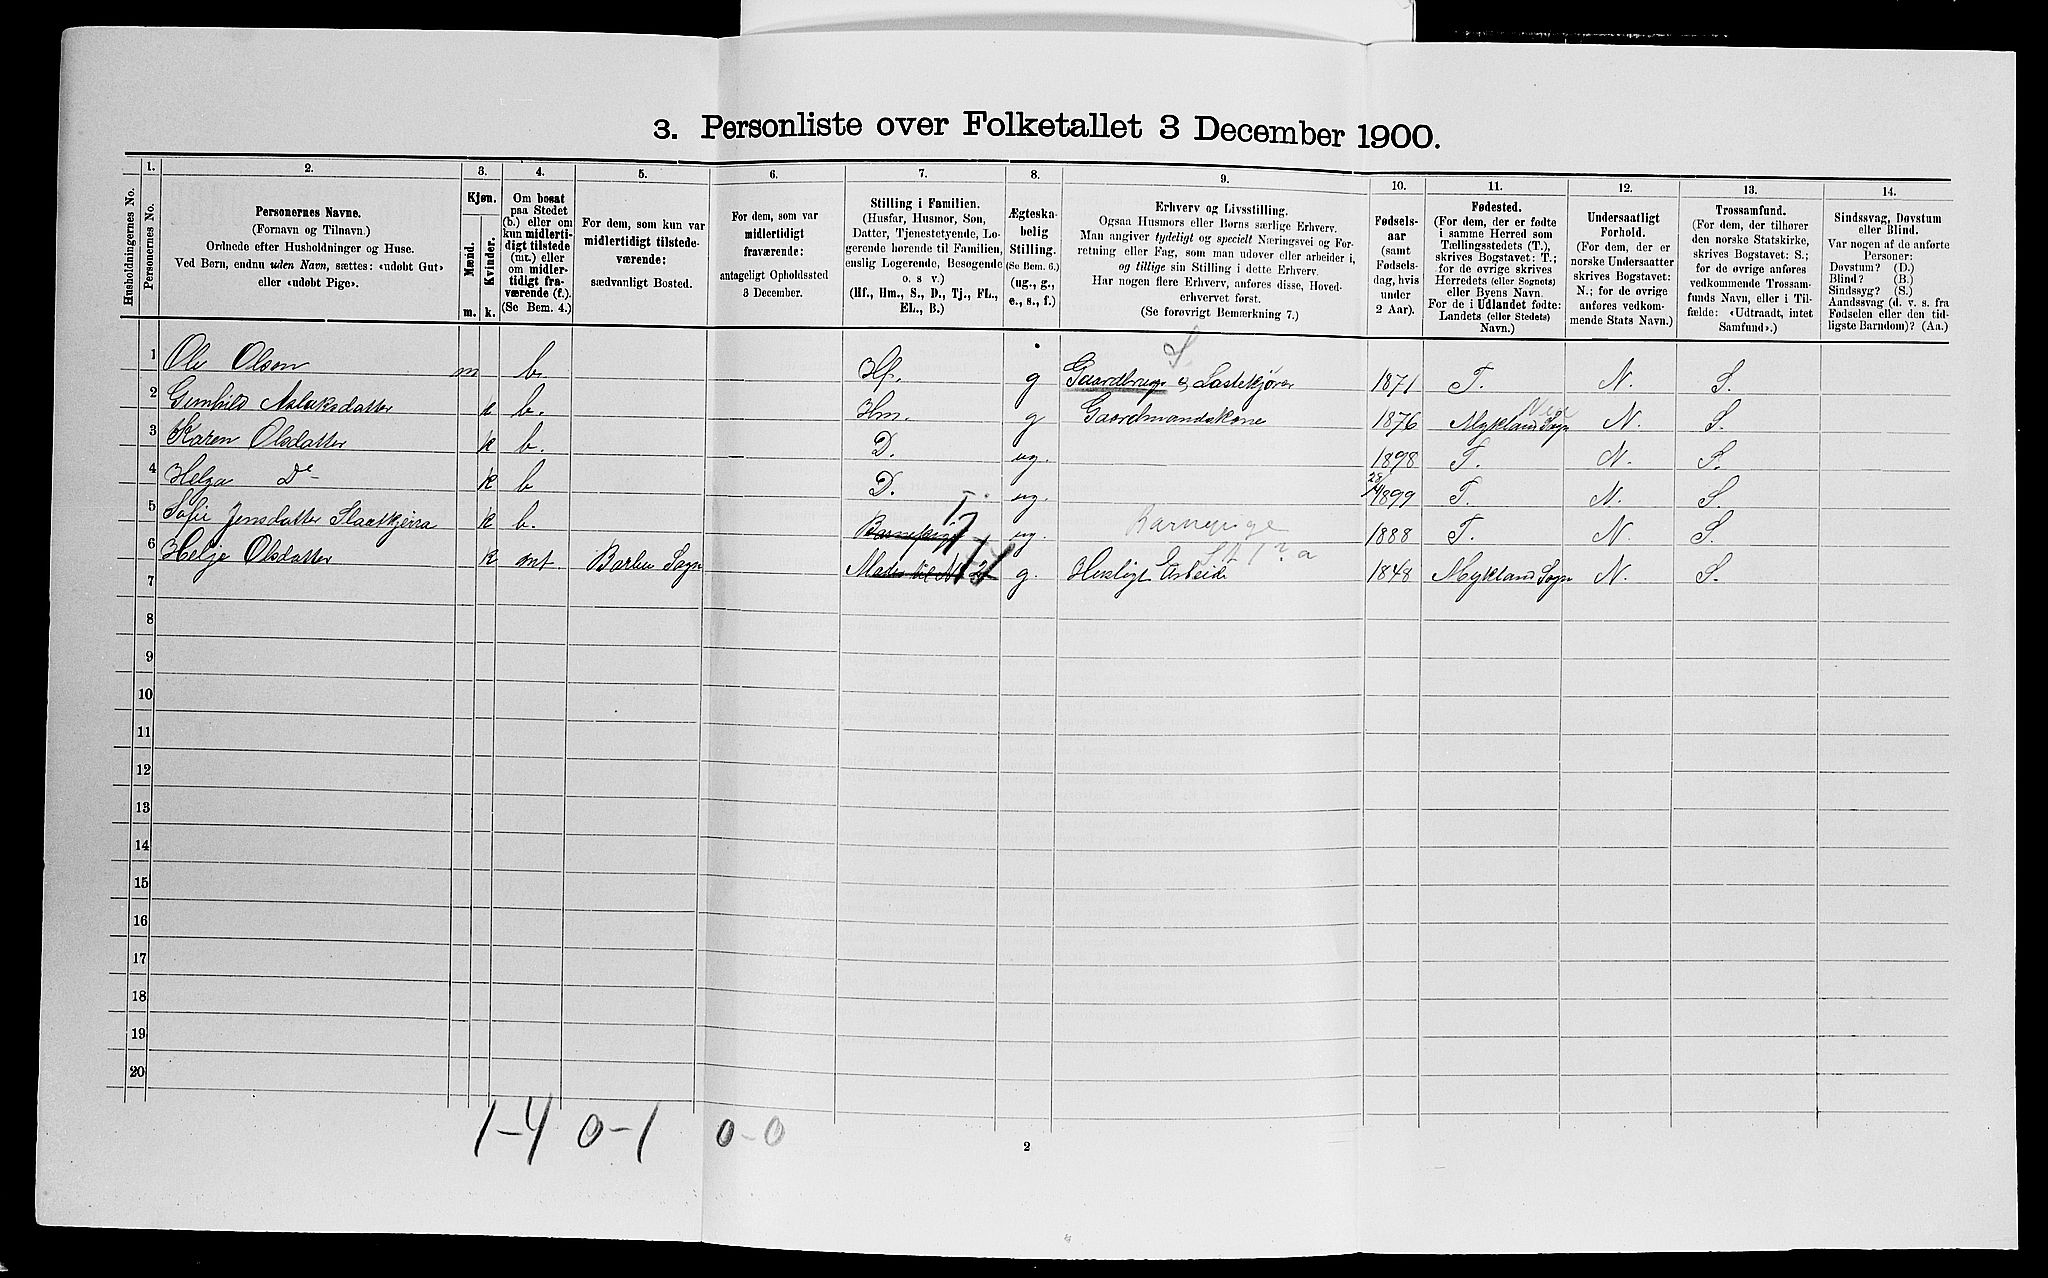 3. Personliste over Folketallet 3 December 1900.
Husholdningernes No.
1. Personernes No.
2. Personernes Navne.
(Fornavn og Tilnavn.)
Ordnede efter Husholdninger og Huse.
Ved Børn, endnu uden Navn, sættes: «udøbt Gut»
eller «udøbt Pige».
3. Kjøn.
Mænd. m.
Kvinder. k.
4. Om bosat
paa Stedet
(b.) eller om
kun midlerti-
digt tilstede
(mt.) eller
om midler-
tidigt fra-
værende (f.).
(Se Bem. 4.)
5. For dem, som kun var
midlertidigt tilstede-
værende:
sædvanligt Bosted.
6. For dem, som var
midlertidigt
fraværende:
antageligt Opholdssted
3 December.
7. Stilling i Familien.
(Husfar, Husmor, Søn,
Datter, Tjenestetyende, Lo-
gerende hørende til Familien,
enslig Logerende, Besøgende
o. s v.)
(Hf., Hm., S., D., Tj., FL.,
EL., B.)
8. Ægteska-
belig
Stilling.
(Se Bem. 6.)
(ug., g.,
e., s., f.)
9. Erhverv og Livsstilling.
Ogsaa Husmors eller Børns særlige Erhverv.
Man angiver tydeligt og specielt Næringsvei og For-
retning eller Fag, som man udøver eller arbeider i,
og tillige sin Stilling i dette Erhverv.
Har nogen flere Erhverv, anføres disse, Hoved-
erhvervet først.
(Se forøvrigt Bemærkning 7.)
10. Fødsels-
aar
(samt
Fødsels-
dag, hvis
under
2 Aar).
11. Fødested.
(For dem, der er fødte
i samme Herred som
Tællingsstedets (T.),
skrives Bogstavet: T.;
for de øvrige skrives
Herredets (eller Sognets)
eller Byens Navn.
For de i Udlandet fødte:
Landets (eller Stedets)
Navn.)
12. Undersaatligt
Forhold.
(For dem, der er
norske Undersaatter
skrives Bogstavet:
N.; for de øvrige
anføres vedkom-
mende Stats Navn.)
13. Trossamfund.
(For dem, der tilhører
den norske Statskirke,
skrives Bogstavet: S.;
for de øvrige anføres
vedkommende Trossam-
funds Navn, eller i Til-
fælde: «Udtraadt, intet
Samfund».)
14. Sindssvag, Døvstum
eller Blind.
Var nogen af de anførte
Personer:
Døvstum? (D.)
Blind? (B.)
Sindssyg? (S.)
Aandssvag (d. v. s. fra
Fødselen eller den tid-
ligste Barndom)? (Aa.)
1 Ole Olsen m b. Hf. g Gaardbrug & Lastekjører 1871 T. N. S.
2 Gunhild Aslaksdatter k b. Hm. g Gaardmandskone 1876 Mykland Sogn N. S.
3 Karen Olsdatter k b. D. ug. 1898 T. N. S.
4 Helga Do k b D. ug. 1899 T. N. S.
5 Sofie Jensdatter k b. Barnepige ug. Barnepige 1888 T. N. S.
6 Helje Olsdatter k mt. Sogn Moder til No 2 g. Husligt Arbeide 1848 Mykland Sogn N. S.
7
8
9
10
11
12
13
14
15
16
17
18
19
20
1-4 0-1 0-0
2